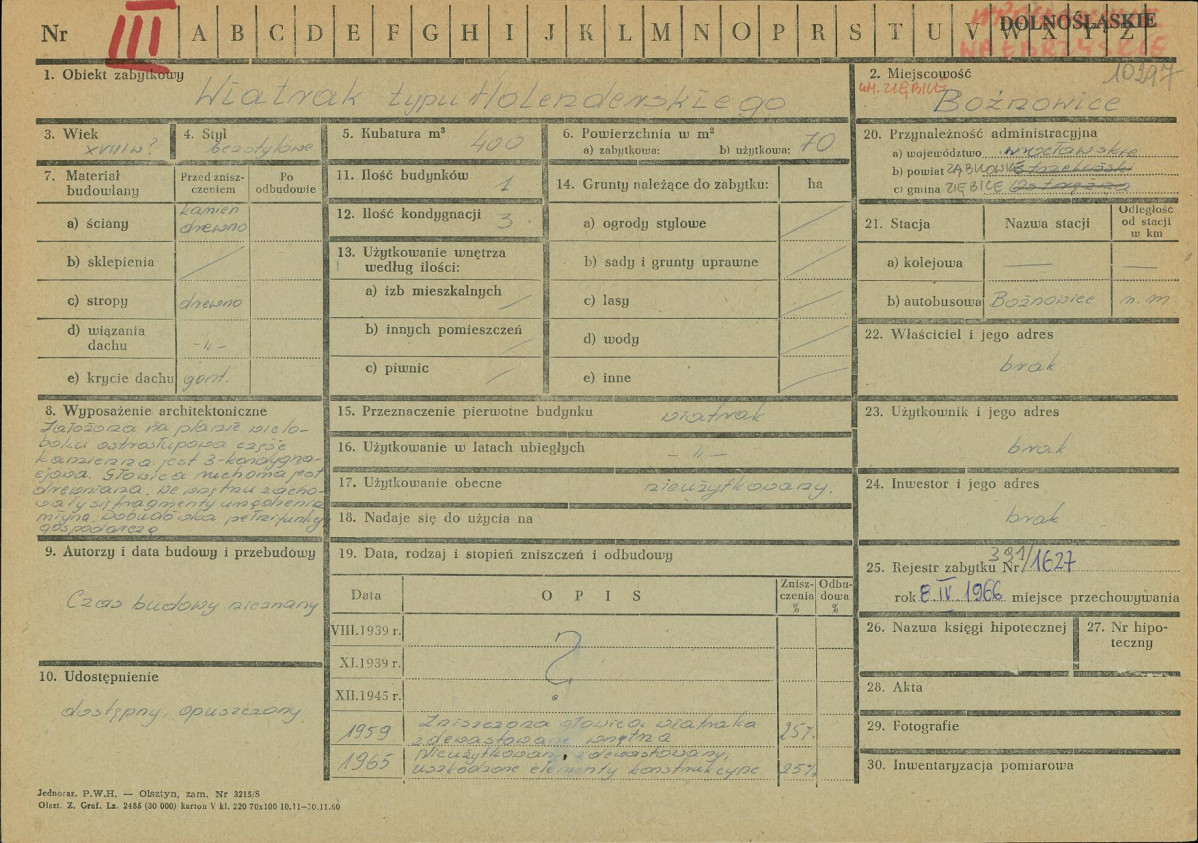 Nr III A B C D E F G H I J K L M N O P R S T U V W X Y Z
DOLNOŚLĄSKIE
WAŁBRZYSKIE
10397
1. Obiekt zabytkowy
Wiatrak typu Holenderskiego
2. Miejscowość
GM. ZIĘBICE
Bożnowice
3. Wiek
XVIII w?
4. Styl
bezstylowe
5. Kubatura m³
400
6. Powierzchnia w m²
a) zabytkowa: b) użytkowa: 70
7. Materiał budowlany
Przed zniszczeniem
Po odbudowie
a) ściany kamień drewno
b) sklepienia
c) stropy drewno
d) wiązania dachu -„-
e) krycie dachu gont.
11. Ilość budynków 1
12. Ilość kondygnacji 3
13. Użytkowanie wnętrza
według ilości:
a) izb mieszkalnych
b) innych pomieszczeń
c) piwnic
14. Grunty należące do zabytku: ha
a) ogrody stylowe
b) sady i grunty uprawne
c) lasy
d) wody
e) inne
20. Przynależność administracyjna
a) województwo wrocławskie
b) powiat ZĄBKOWICKI strzeliński
c) gmina ZIĘBICE
21. Stacja Nazwa stacji Odległość od stacji w km
a) kolejowa — —
b) autobusowa Bożnowice n. m
22. Właściciel i jego adres
brak
23. Użytkownik i jego adres
brak
24. Inwestor i jego adres
brak
8. Wyposażenie architektoniczne
Założona na planie wielo-
boku ostrosłupowa część
kamienna jest 3-kondygna-
cjowa. Głowica ruchoma jest
drewniana. We wnętrzu zacho-
wały się fragmenty urządzenia
młyna. Dobudówka pełni funkcję
gospodarczą
9. Autorzy i data budowy i przebudowy
Czas budowy nieznany
10. Udostępnienie
dostępny, opuszczony
15. Przeznaczenie pierwotne budynku wiatrak
16. Użytkowanie w latach ubiegłych -„-
17. Użytkowanie obecne nieużytkowany.
18. Nadaje się do użycia na
19. Data, rodzaj i stopień zniszczeń i odbudowy
Data OPIS Zniszczenia % Odbudowa %
VIII.1939 r.
XI.1939 r. ?
XII.1945 r.
1959 Zniszczona głowica wiatraka
zdewastowane wnętrza 25%
1965 Nieużytkowany, zdewastowany,
uszkodzone elementy konstrukcyjne 25%
25. Rejestr zabytku Nr 391/1627
rok 8 IV 1966 miejsce przechowywania
26. Nazwa księgi hipotecznej
27. Nr hipoteczny
28. Akta
29. Fotografie
30. Inwentaryzacja pomiarowa
Jednoraz. P.W.H. — Olsztyn, zam. Nr 3215/S
Olszt. Z. Graf. Lz. 2486 (30 000) karton V kl. 220 70x100 10.11—30.11.60